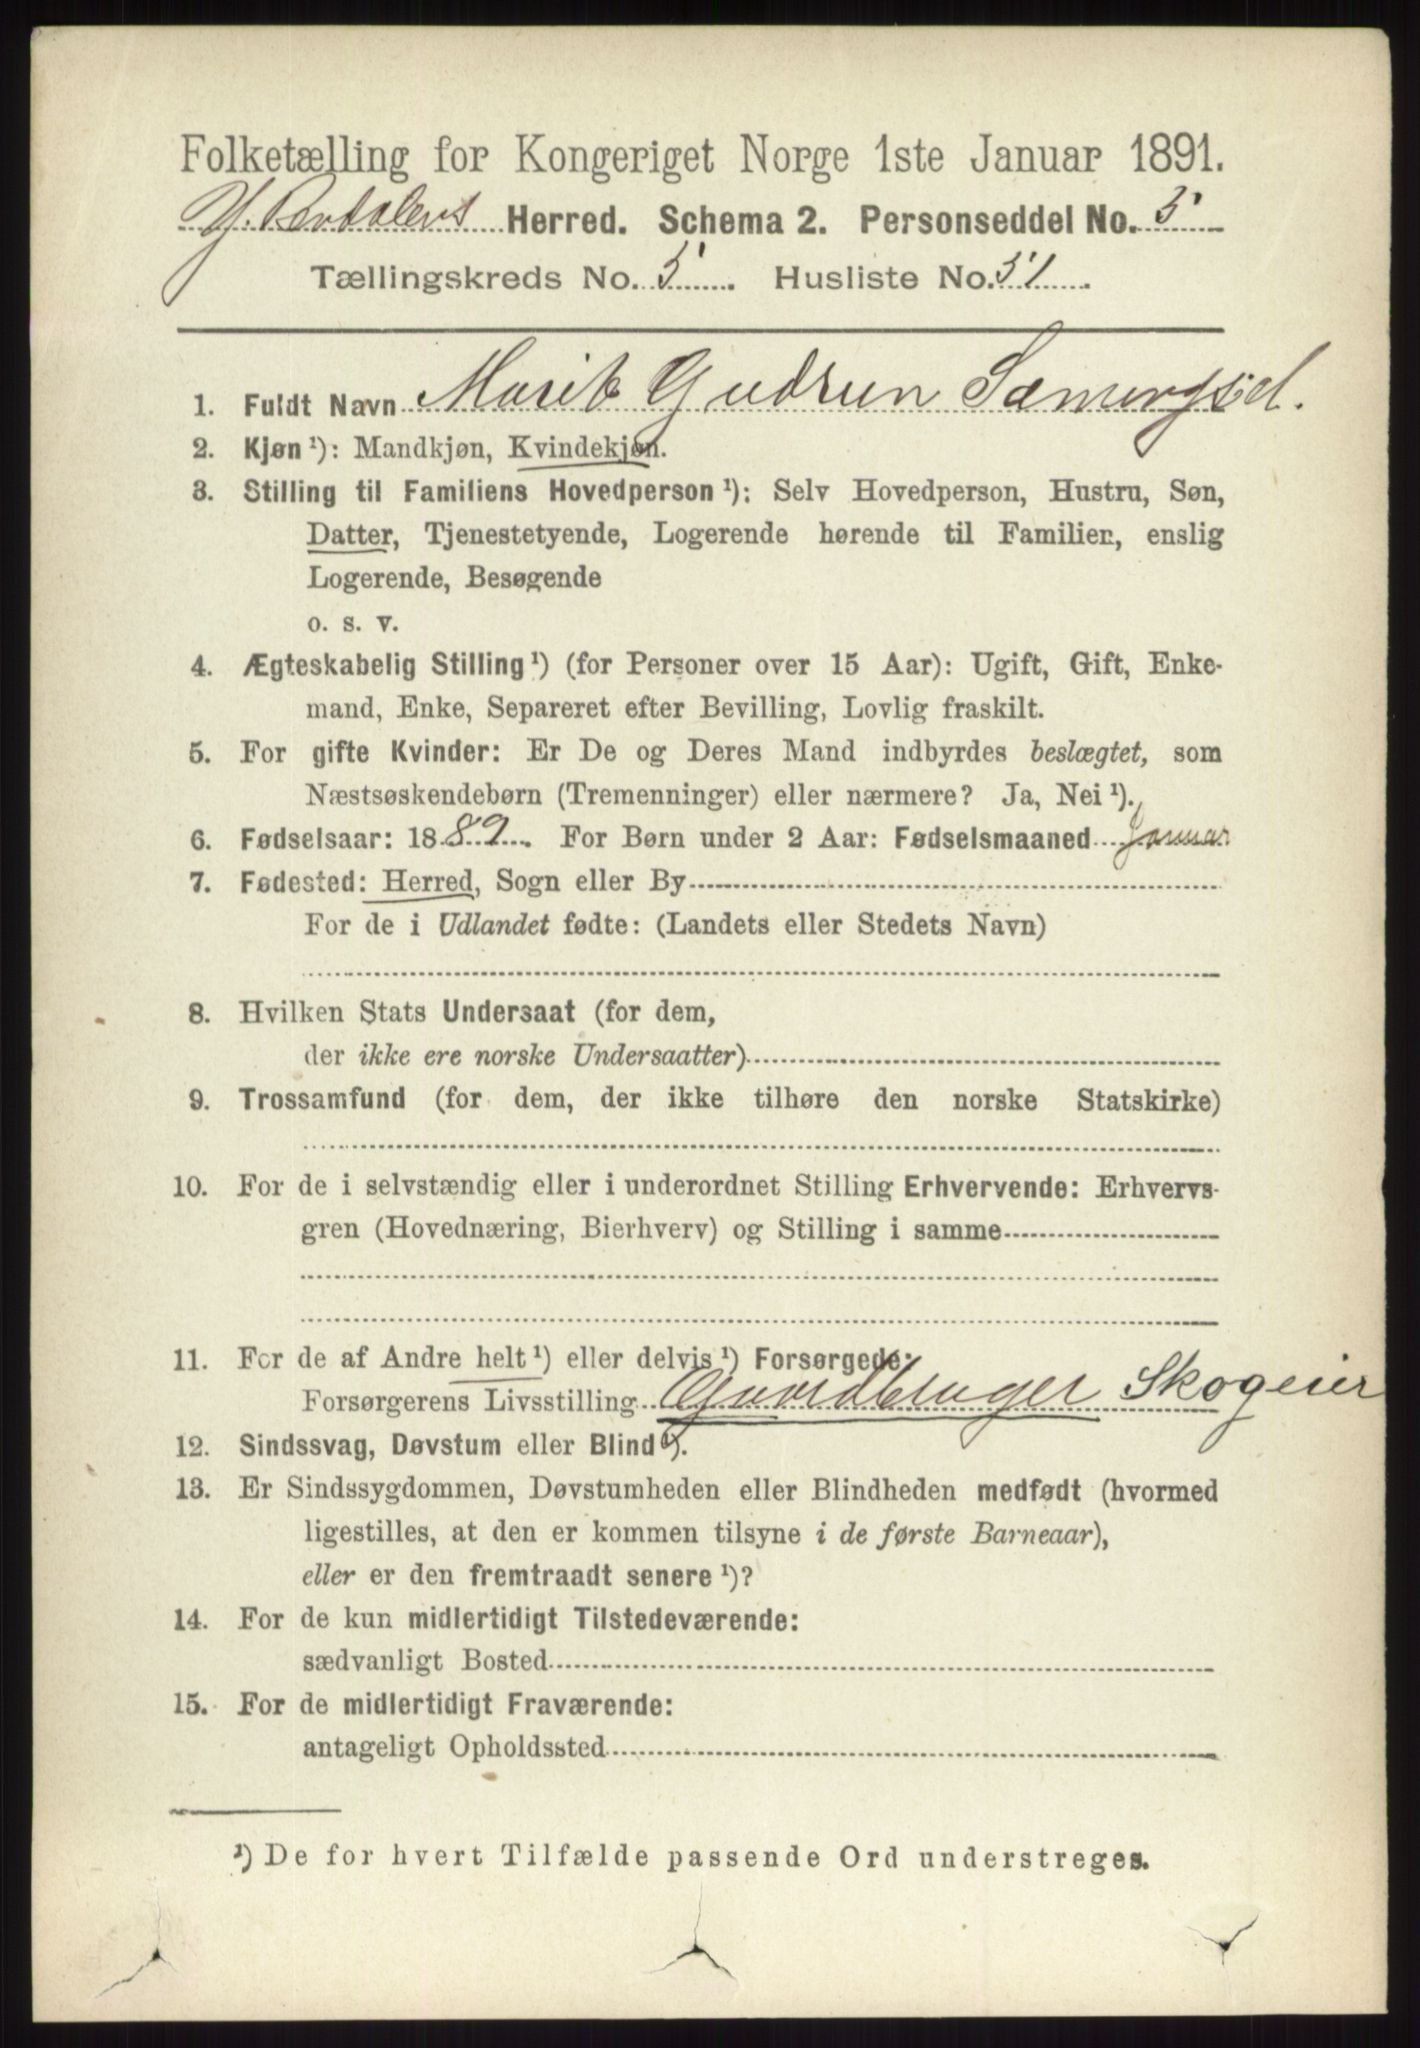 Folketælling for Kongeriget Norge 1ste Januar 1891.
Y. Rendalens Herred. Schema 2. Personseddel No. 5
Tællingskreds No. 5. Husliste No. 51.
1. Fuldt Navn Marit Gudrun
2. Kjøn ¹): Mandkjøn, Kvindekjøn.
3. Stilling til Familiens Hovedperson ¹): Selv Hovedperson, Hustru, Søn,
Datter, Tjenestetyende, Logerende hørende til Familien, enslig
Logerende, Besøgende
o. s. v.
4. Ægteskabelig Stilling ¹) (for Personer over 15 Aar): Ugift, Gift, Enke-
mand, Enke, Separeret efter Bevilling, Lovlig fraskilt.
5. For gifte Kvinder: Er De og Deres Mand indbyrdes beslægtet, som
Næstsøskendebørn (Tremenninger) eller nærmere? Ja, Nei ¹).
6. Fødselsaar: 1889. For Børn under 2 Aar: Fødselsmaaned Januar
7. Fødested: Herred, Sogn eller By
For de i Udlandet fødte: (Landets eller Stedets Navn)
8. Hvilken Stats Undersaat (for dem,
der ikke ere norske Undersaatter)
9. Trossamfund (for dem, der ikke tilhøre den norske Statskirke)
10. For de i selvstændig eller i underordnet Stilling Erhvervende: Erhvervs-
gren (Hovednæring, Bierhverv) og Stilling i samme
11. For de af Andre helt ¹) eller delvis ¹) Forsørgede:
Forsørgerens Livsstilling Gaardbruger Skogeier
12. Sindssvag, Døvstum eller Blind ¹).
13. Er Sindssygdommen, Døvstumheden eller Blindheden medfødt (hvormed
ligestilles, at den er kommen tilsyne i de første Barneaar),
eller er den fremtraadt senere ¹)?
14. For de kun midlertidigt Tilstedeværende:
sædvanligt Bosted
15. For de midlertidigt Fraværende:
antageligt Opholdssted
¹) De for hvert Tilfælde passende Ord understreges.